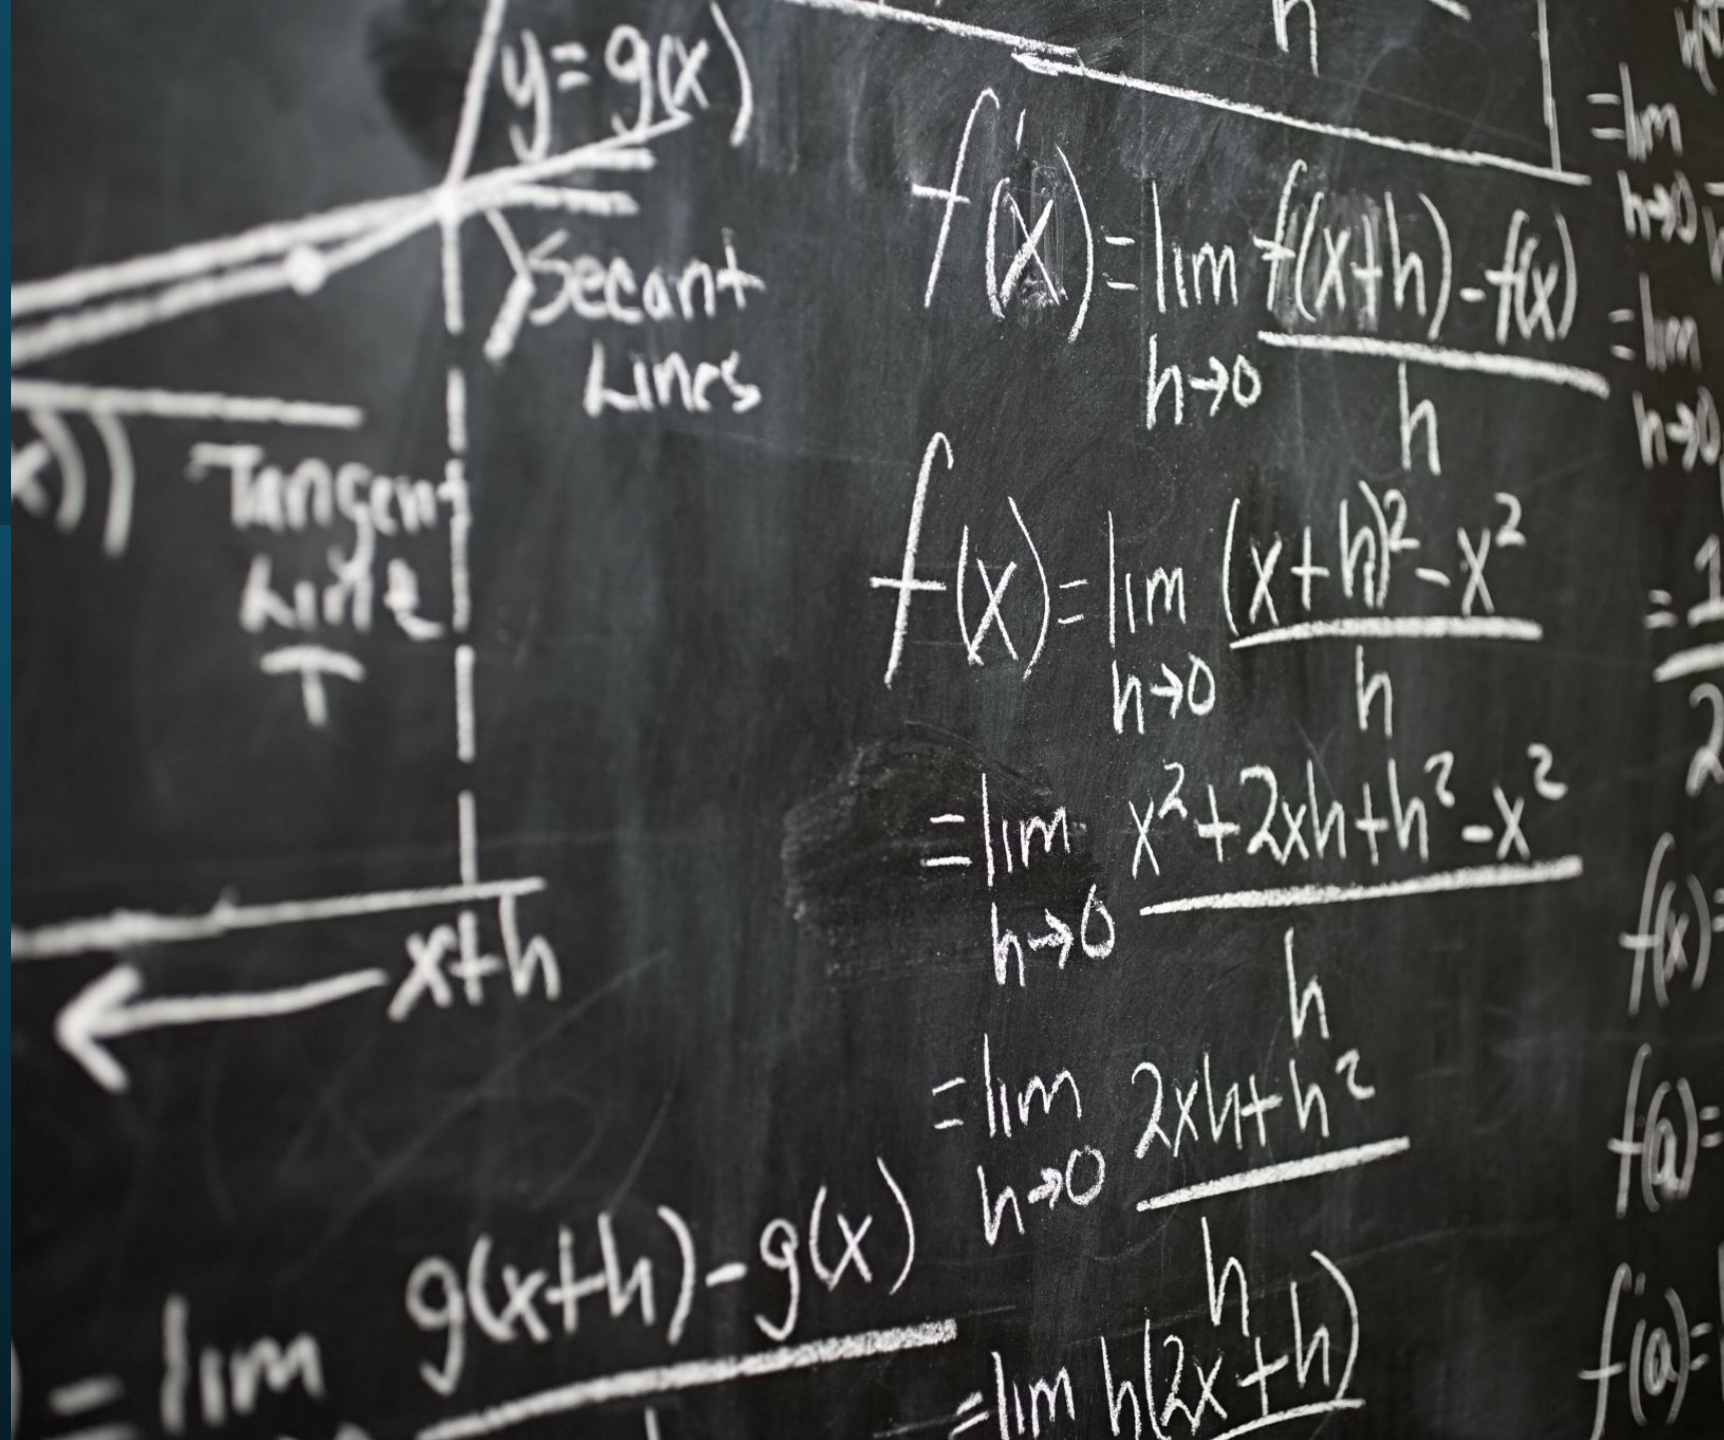 y=g(x)
Secant
Lines
x))
Tangent
Line
T
x+h
= lim g(x+h)-g(x)
h
f'(x)=lim f(x+h)-f(x)
h→0 h
f(x)=lim (x+h)²-x²
h→0 h
=lim x²+2xh+h²-x²
h→0 h
=lim 2xh+h²
h→0 h
=lim h(2x+h)
=lim
h→0
=lim
h→0
=1
2
f(x)=
f(a)=
f'(a)=